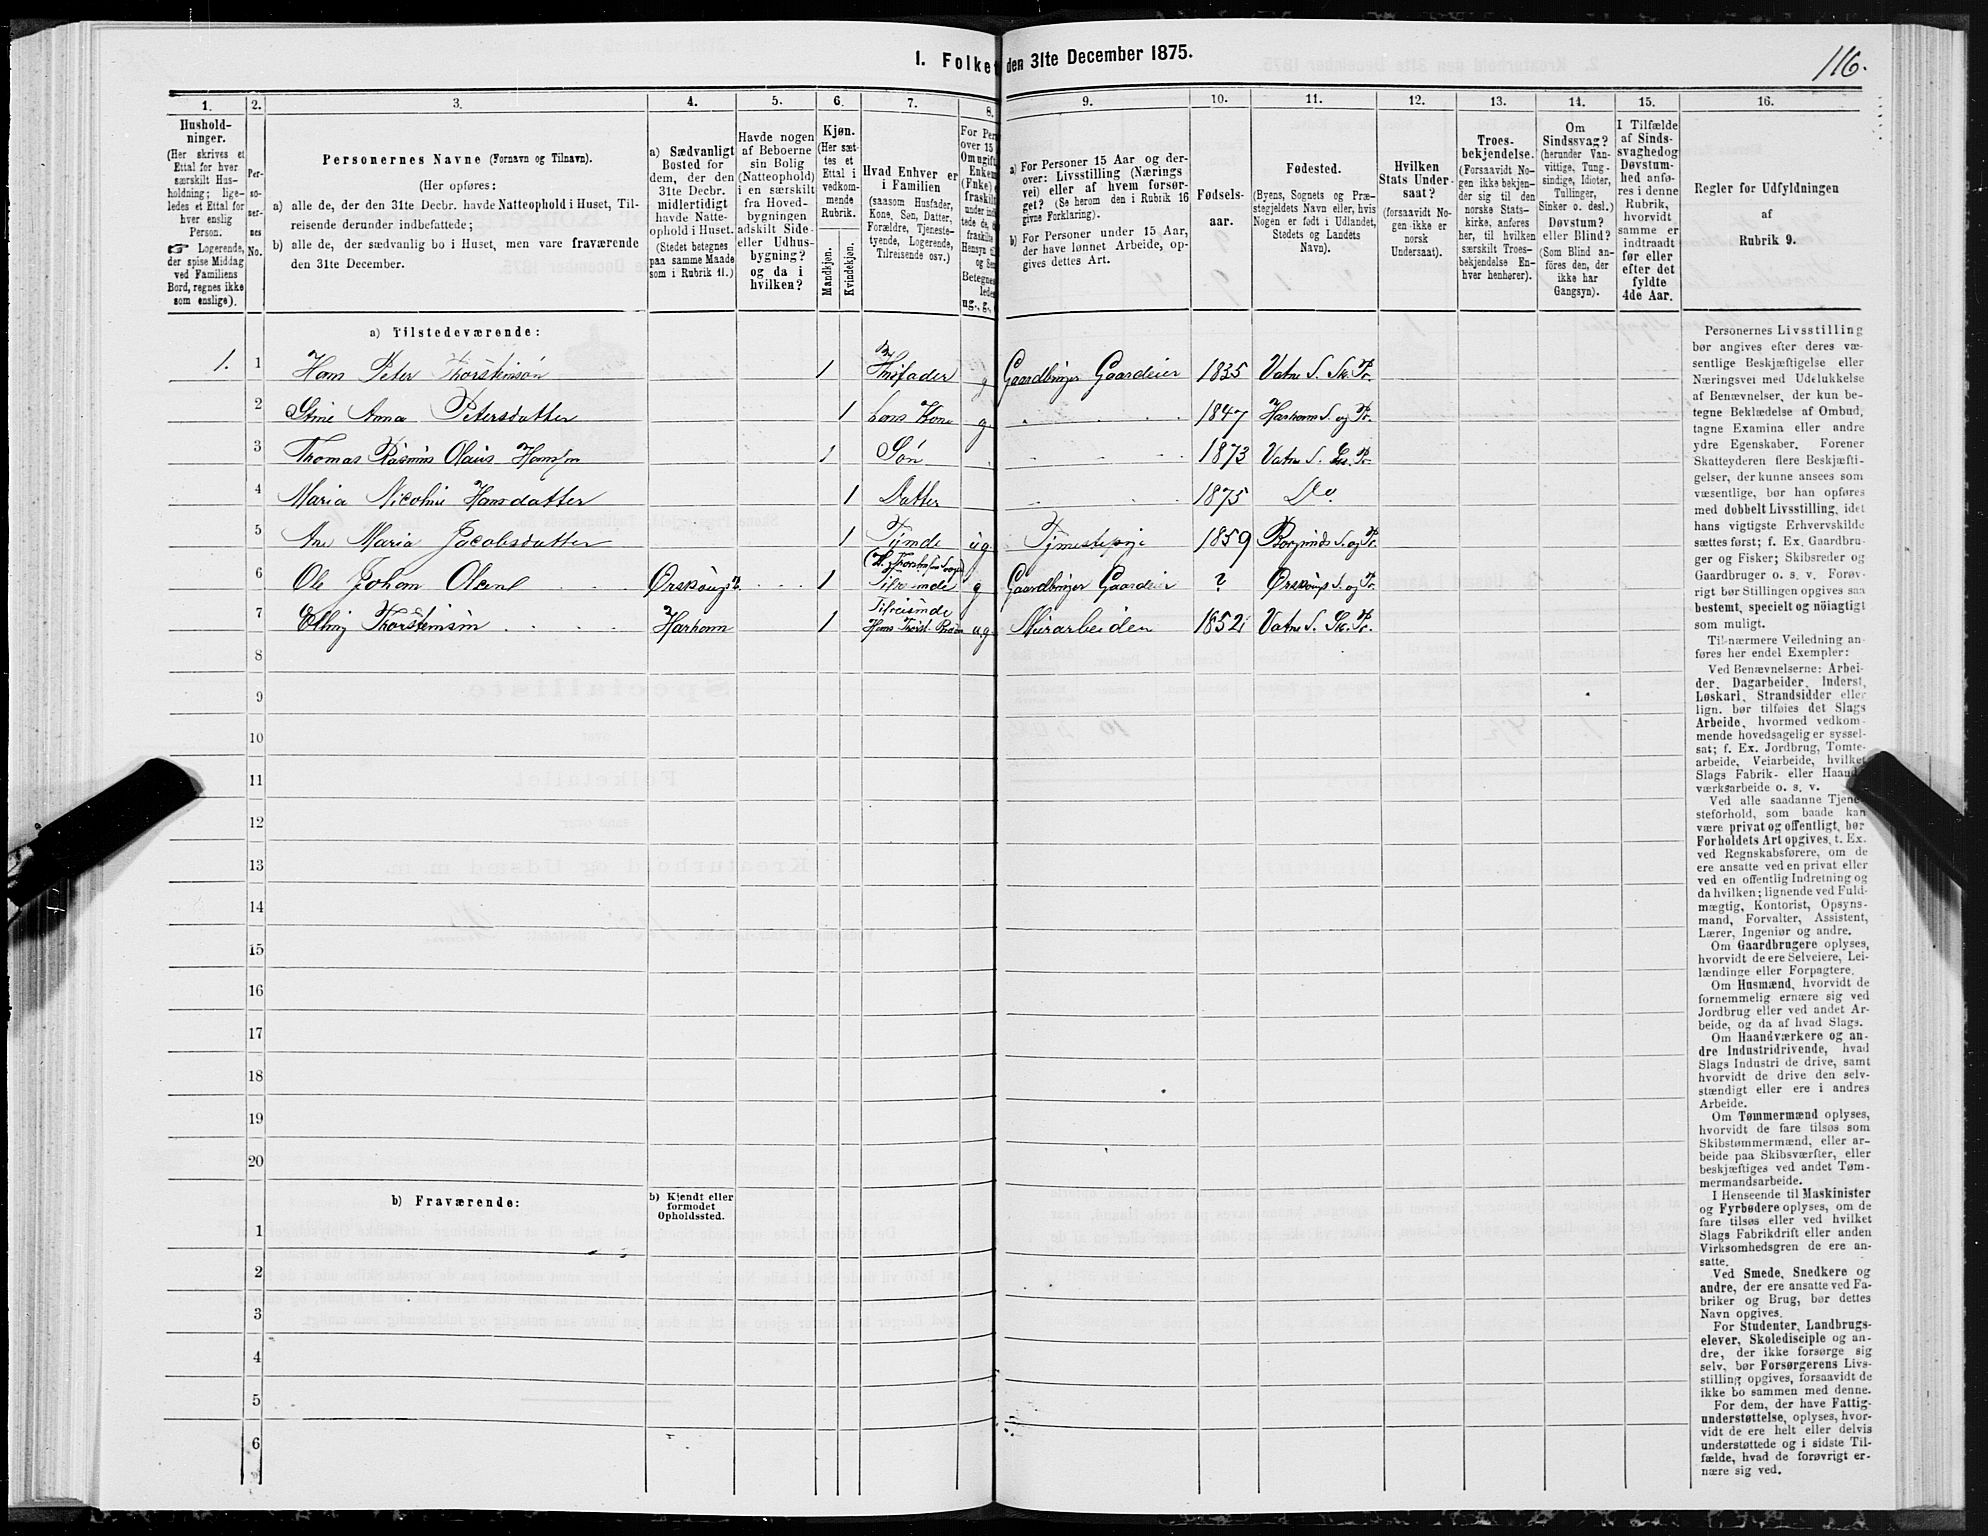 116.
1. Folket den 31te December 1875.
1. 2. 3. 4. 5. 6. 7. 8. 9. 10. 11. 12. 13. 14. 15. 16.
Hushold-
ninger.
(Her skrives et
Ettal for hver
særskilt Hus-
holdning; lige-
ledes et Ettal for
hver enslig
Person.
☞ Logerende,
der spise Middag
ved Familiens
Bord, regnes ikke
som enslige).
Per-
so-
ner-
nes
No.
Personernes Navne (Fornavn og Tilnavn).
(Her opføres:
a) alle de, der den 31te Decbr. havde Natteophold i Huset, Til-
reisende derunder indbefattede;
b) alle de, der sædvanlig bo i Huset, men vare fraværende
den 31te December.
a) Sædvanligt
Bosted for
dem, der den
31te Decbr.
midlertidigt
havde Natte-
ophold i Huset.
(Stedet betegnes
paa samme Maade
som i Rubrik 11.)
Havde nogen
af Beboerne
sin Bolig
(Natteophold)
i en særskilt
fra Hoved-
bygningen
adskilt Side-
eller Udhus-
bygning?
og da i
hvilken?
Kjøn.
(Her sæt-
tes et
Ettal i
vedkom-
mende
Rubrik.
Mandkjøn.
Kvindekjøn.
Hvad Enhver er
i Familien
(saasom Husfader,
Kone, Søn, Datter,
Forældre, Tjeneste-
tyende, Logerende,
Tilreisende osv.)
For Per
over 15
Om ugift
Enken
(Fnke)
fraskilt
Betegnes
ledes
ug., g.,
a) For Personer 15 Aar og der-
over: Livsstilling (Nærings
vei) eller af hvem forsør-
get? (Se herom den i Rubrik 16
givne Forklaring).
b) For Personer under 15 Aar,
der have lønnet Arbeide, op-
gives dettes Art.
Fødsels-
aar.
Fødested.
(Byens, Sognets og Præ-
stegjeldets Navn eller, hvis
Nogen er født i Udlandet,
Stedets og Landets
Navn).
Hvilken
Stats Under-
saat?
(forsaavidt No-
gen ikke er
norsk
Undersaat).
Troes-
bekjendelse.
(Forsaavidt No-
gen ikke bekjen-
der sig til den
norske Stats-
kirke, anføres
her, til hvilken
særskilt Troes-
bekjendelse En-
hver henhører).
Om
Sindssvag?
(herunder Van-
vittige, Tung-
sindige, Idioter,
Tullinger,
Sinker o. desl.)
Døvstum?
eller Blind?
(Som Blind an-
føres den, der
ikke har
Gangsyn).
I Tilfælde
af Sinds-
svaghed og
Døvstum-
hed anfø-
res i denne
Rubrik,
hvorvidt
samme er
indtraadt
før eller
efter det
fyldte
4de Aar.
Regler for Udfyldningen
af
Rubrik 9.
a) Tilstedeværende:
1. 1 Hans Peter Thorsteinsøn 1 Husfader g Gaardbruger Gaardeier 1835 Vatne S. Sk. Pr.
2 Stine Anna Petersdatter 1 hans Kone g 1847 Harham S. og Pr.
3 Thomas Rasmus Olaus Hansen 1 Søn 1873 Vatne S. Sk. Pr.
4 Maria Nicoline Hansdatter 1 Datter 1875 Do.
5 Ane Maria Jacobsdatter 1 Tjende ug Tjenestepige 1859 Borgunds S. og Pr.
6 Ole Johan Olsen Ørskougs 1 Tilreisende g Gaardbruger Gaardeier ? Ørskougs S. og Pr.
7 Thorsteinsøn Harham 1 Tilreisende Hans Thorst. ug 1852 Vatne S. Sk. Pr.
8
9
10
11
12
13
14
15
16
17
18
19
20
b) Fraværende:
b) Kjendt eller
formodet
Opholdssted.
1
2
3
4
5
6
Personernes Livsstilling
bør angives efter deres væ-
sentlige Beskjæftigelse eller
Næringsvei med Udelukkelse
af Benævnelser, der kun be-
tegne Beklædelse af Ombud,
tagne Examina eller andre
ydre Egenskaber. Forener
Skatteyderen flere Beskjæfti-
gelser, der kunne ansees som
væsentlige, bør han opføres
med dobbelt Livsstilling, idet
hans vigtigste Erhvervskilde
sættes først; f. Ex. Gaardbru-
ger og Fisker; Skibsreder og
Gaardbruger o. s. v. Forøv-
rigt bør Stillingen opgives saa
bestemt, specielt og nøiagtigt
som muligt.
Til nærmere Veiledning an-
føres her endel Exempler:
Ved Benævnelserne: Arbei-
der, Dagarbeider, Inderst,
Løskarl, Strandsidder eller
lign. bør tilføies det Slags
Arbeide, hvormed vedkom-
mende hovedsagelig er syssel-
sat; f. Ex. Jordbrug, Tomte-
arbeide, Veiarbeide, hvilket
Slags Fabrik- eller Haand-
værksarbeide o. s. v.
Ved alle saadanne Tjene-
steforhold, som baade kan
være privat og offentligt, bør
Forholdets Art opgives, t. Ex.
ved Regnskabsførere, om de
ere ansatte ved en privat eller
ved en offentlig Indretning og
da hvilken; lignende ved Fuld-
mægtig, Kontorist, Opsyns-
mand, Forvalter, Assistent,
Lærer, Ingeniør og andre.
Om Gaardbrugere oplyses,
hvorvidt de ere Selveiere, Lei-
lændinge eller Forpagtere.
Om Husmænd, hvorvidt de
fornemmelig ernære sig ved
Jordbrug eller ved andet Ar-
beide, og da af hvad Slags.
Om Haandværkere og an-
dre Industridrivende, hvad
Slags Industri de drive, samt
hvorvidt de drive den selv-
stændigt eller ere i andres
Arbeide.
Om Tømmermænd oplyses,
hvorvidt de fare tilsøs som
Skibstømmermænd, eller ar-
beide paa Skibsværfter, eller
beskjæftiges ved andet Tøm-
mermandsarbeide.
I Henseende til Maskinister
og Fyrbødere oplyses, om de
fare tilsøs eller ved hvilket
Slags Fabrikdrift eller anden
Virksomhedsgren de ere an-
satte.
Ved Smede, Snedkere og
andre, der ere ansatte ved Fa-
briker og Brug, bør dettes
Navn opgives.
For Studenter, Landbrugs-
elever, Skoledisciple og an-
dre, der ikke forsørge sig
selv, bør Forsørgerens Livs-
stilling opgives, forsaavidt de
ikke bo sammen med denne.
For dem, der have Fattig-
understøttelse, oplyses, hvor-
vidt de ere helt eller delvis
understøttede og i sidste Til-
fælde, hvad de forøvrigt er-
nære sig ved.